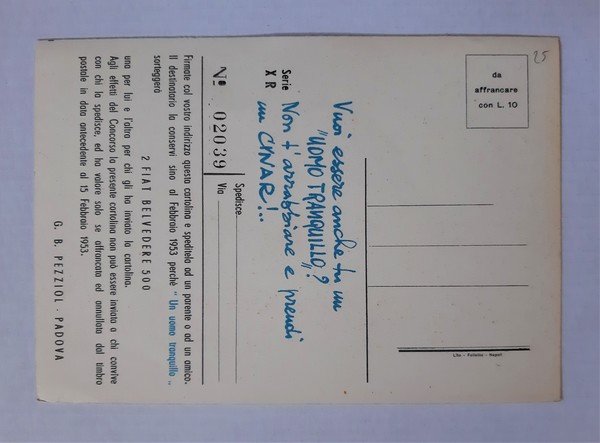 25
da
affrancare
con L. 10
Vuoi essere anche tu un
"UOMO TRANQUILLO,,?
Non t'arrabbiare e prendi
un CYNAR!...
Serie
X R
Nº 02039
Spedisce
Via
Firmate col vostro indirizzo questa cartolina e speditela ad un parente o ad un amico.
Il destinatario la conservi sino al Febbraio 1953 perchè "Un uomo tranquillo„
sorteggerà
2 FIAT BELVEDERE 500
una per lui e l'altra per chi gli ha inviato la cartolina.
Agli effetti del Concorso la presente cartolina non può essere inviata a chi convive
con chi la spedisce, ed ha valore solo se affrancata ed annullata dal timbro
postale in data antecedente al 15 Febbraio 1953.
G. B. PEZZIOL - PADOVA
Napoli